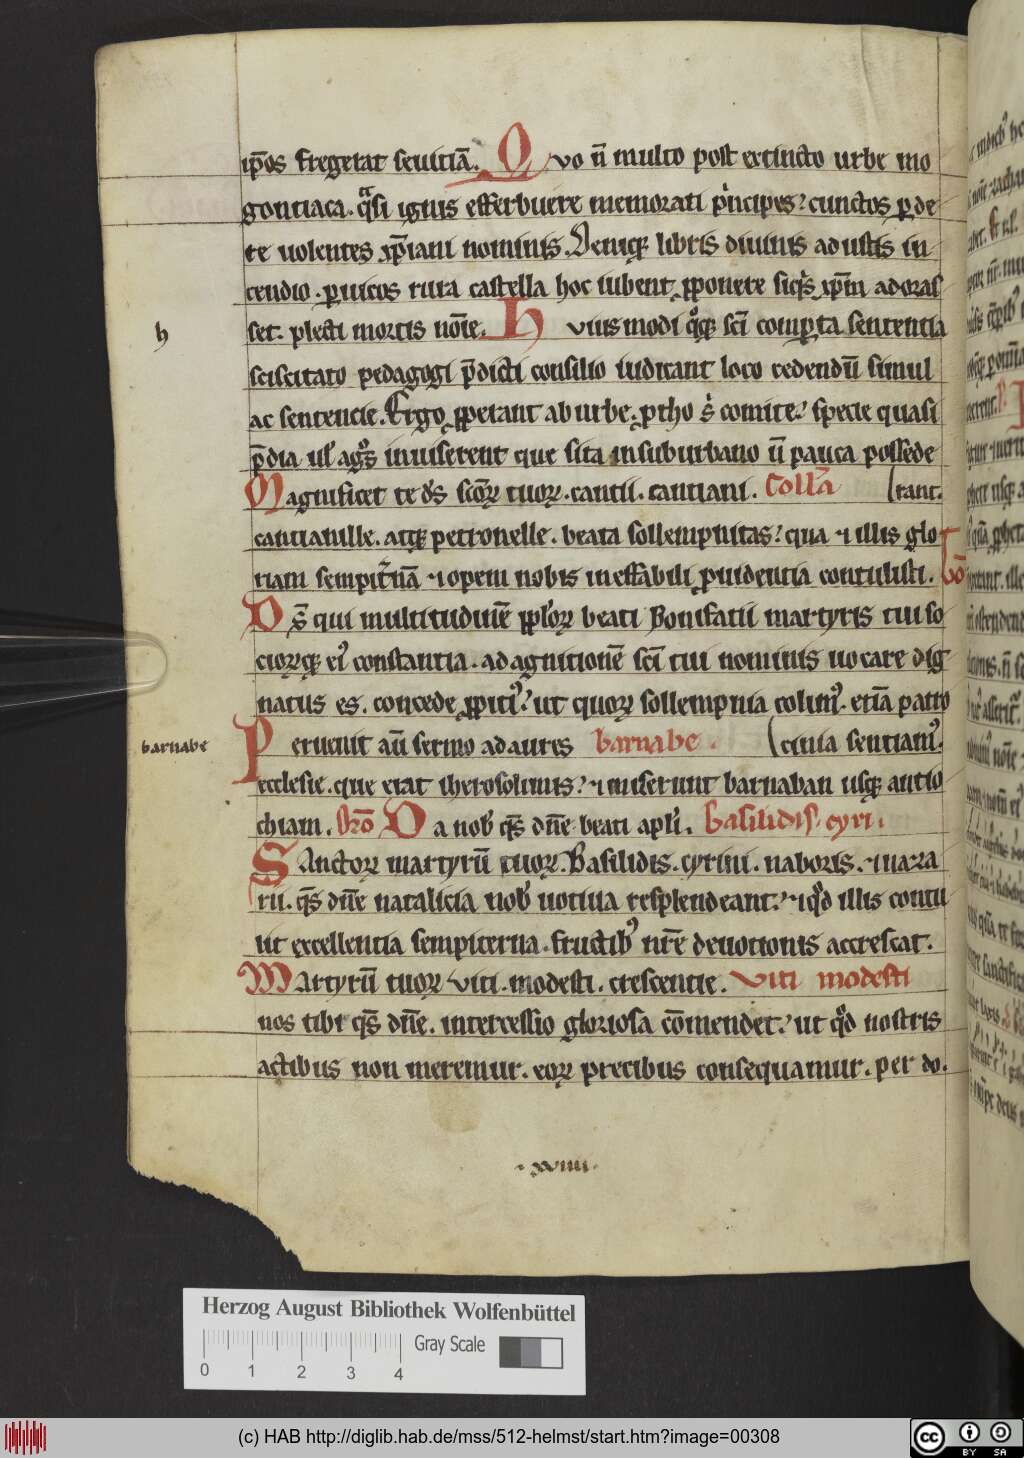 ip̄os fregerat seuiciā. Quo n̄ multo post extincto urbe mo
gontiaca. q̄si ignis efferbuere memorati pͥncipes? cunctos ꝑde
re uolentes xp̄iani nominis. Deniqꝫ libris diuinis adustis in
cendio. ꝑ uicos rura castella hoc iubent ꝓponere siqͥs xp̄m adoras
h
set. plecti mortis noīe. Huius modi qͦqꝫ sc̄i comꝑta sentencia
sciscitato pedagogi p̄dicti consilio iudicant loco cedendū simul
ac sentencie. Ergo ꝓperant ab urbe. ꝓtho s̄ comite? specie quasi
p̄dia ul agͦs inuiserent que sita in suburbano n̄ pauca possede
Magnificet te dn̄s sc̄oꝝ tuoꝝ. cantii. cantiani. Coll̄a rant.
cantianille. atqꝫ petronelle. beata sollempnitas? qua ⁊ illis glo
riam sempit̄nā ⁊ opem nobis ineffabili ꝓuidentia contulisti. bo
Ds̄ qui multitudinē ppl̓oꝝ beati Bonifatii martyris tui so
cioꝝqꝫ eiꝰ constantia. ad agnitionē sc̄i tui nominis uocare dig
natus es. concede ꝓpitiꝰ? ut quoꝝ sollempnia colimꝰ. etiā patro
barnabe
Peruenit aū sermo ad aures barnabe. cinia sentiamꝰ.
ecclesie. que erat iherosolimis? ⁊ miserunt barnaban usqꝫ antio
chiam. Da nob̓ q̄s dn̄e beati apl̓i. Basilidis. cyri.
Sanctoꝝ martyrū tuoꝝ. Basilidis. cyrini. naboris. ⁊ naza
rii. q̄s dn̄e natalicia nob̓ uotiua resplendeant? ⁊ qͦd illis contu
lit excellentia sempiterna. fructibꝰ nr̄e deuotionis accrescat.
Martyrū tuoꝝ viti. modesti. crescentie. Viti modesti
nos tibi q̄s dn̄e. intercessio gloriosa cōmendet? ut qͦd nostris
actibus non meremur. eoꝝ precibus consequamur. per do.
.xviiii.
Herzog August Bibliothek Wolfenbüttel
Gray Scale
0 1 2 3 4
(c) HAB http://diglib.hab.de/mss/512-helmst/start.htm?image=00308
cc BY SA